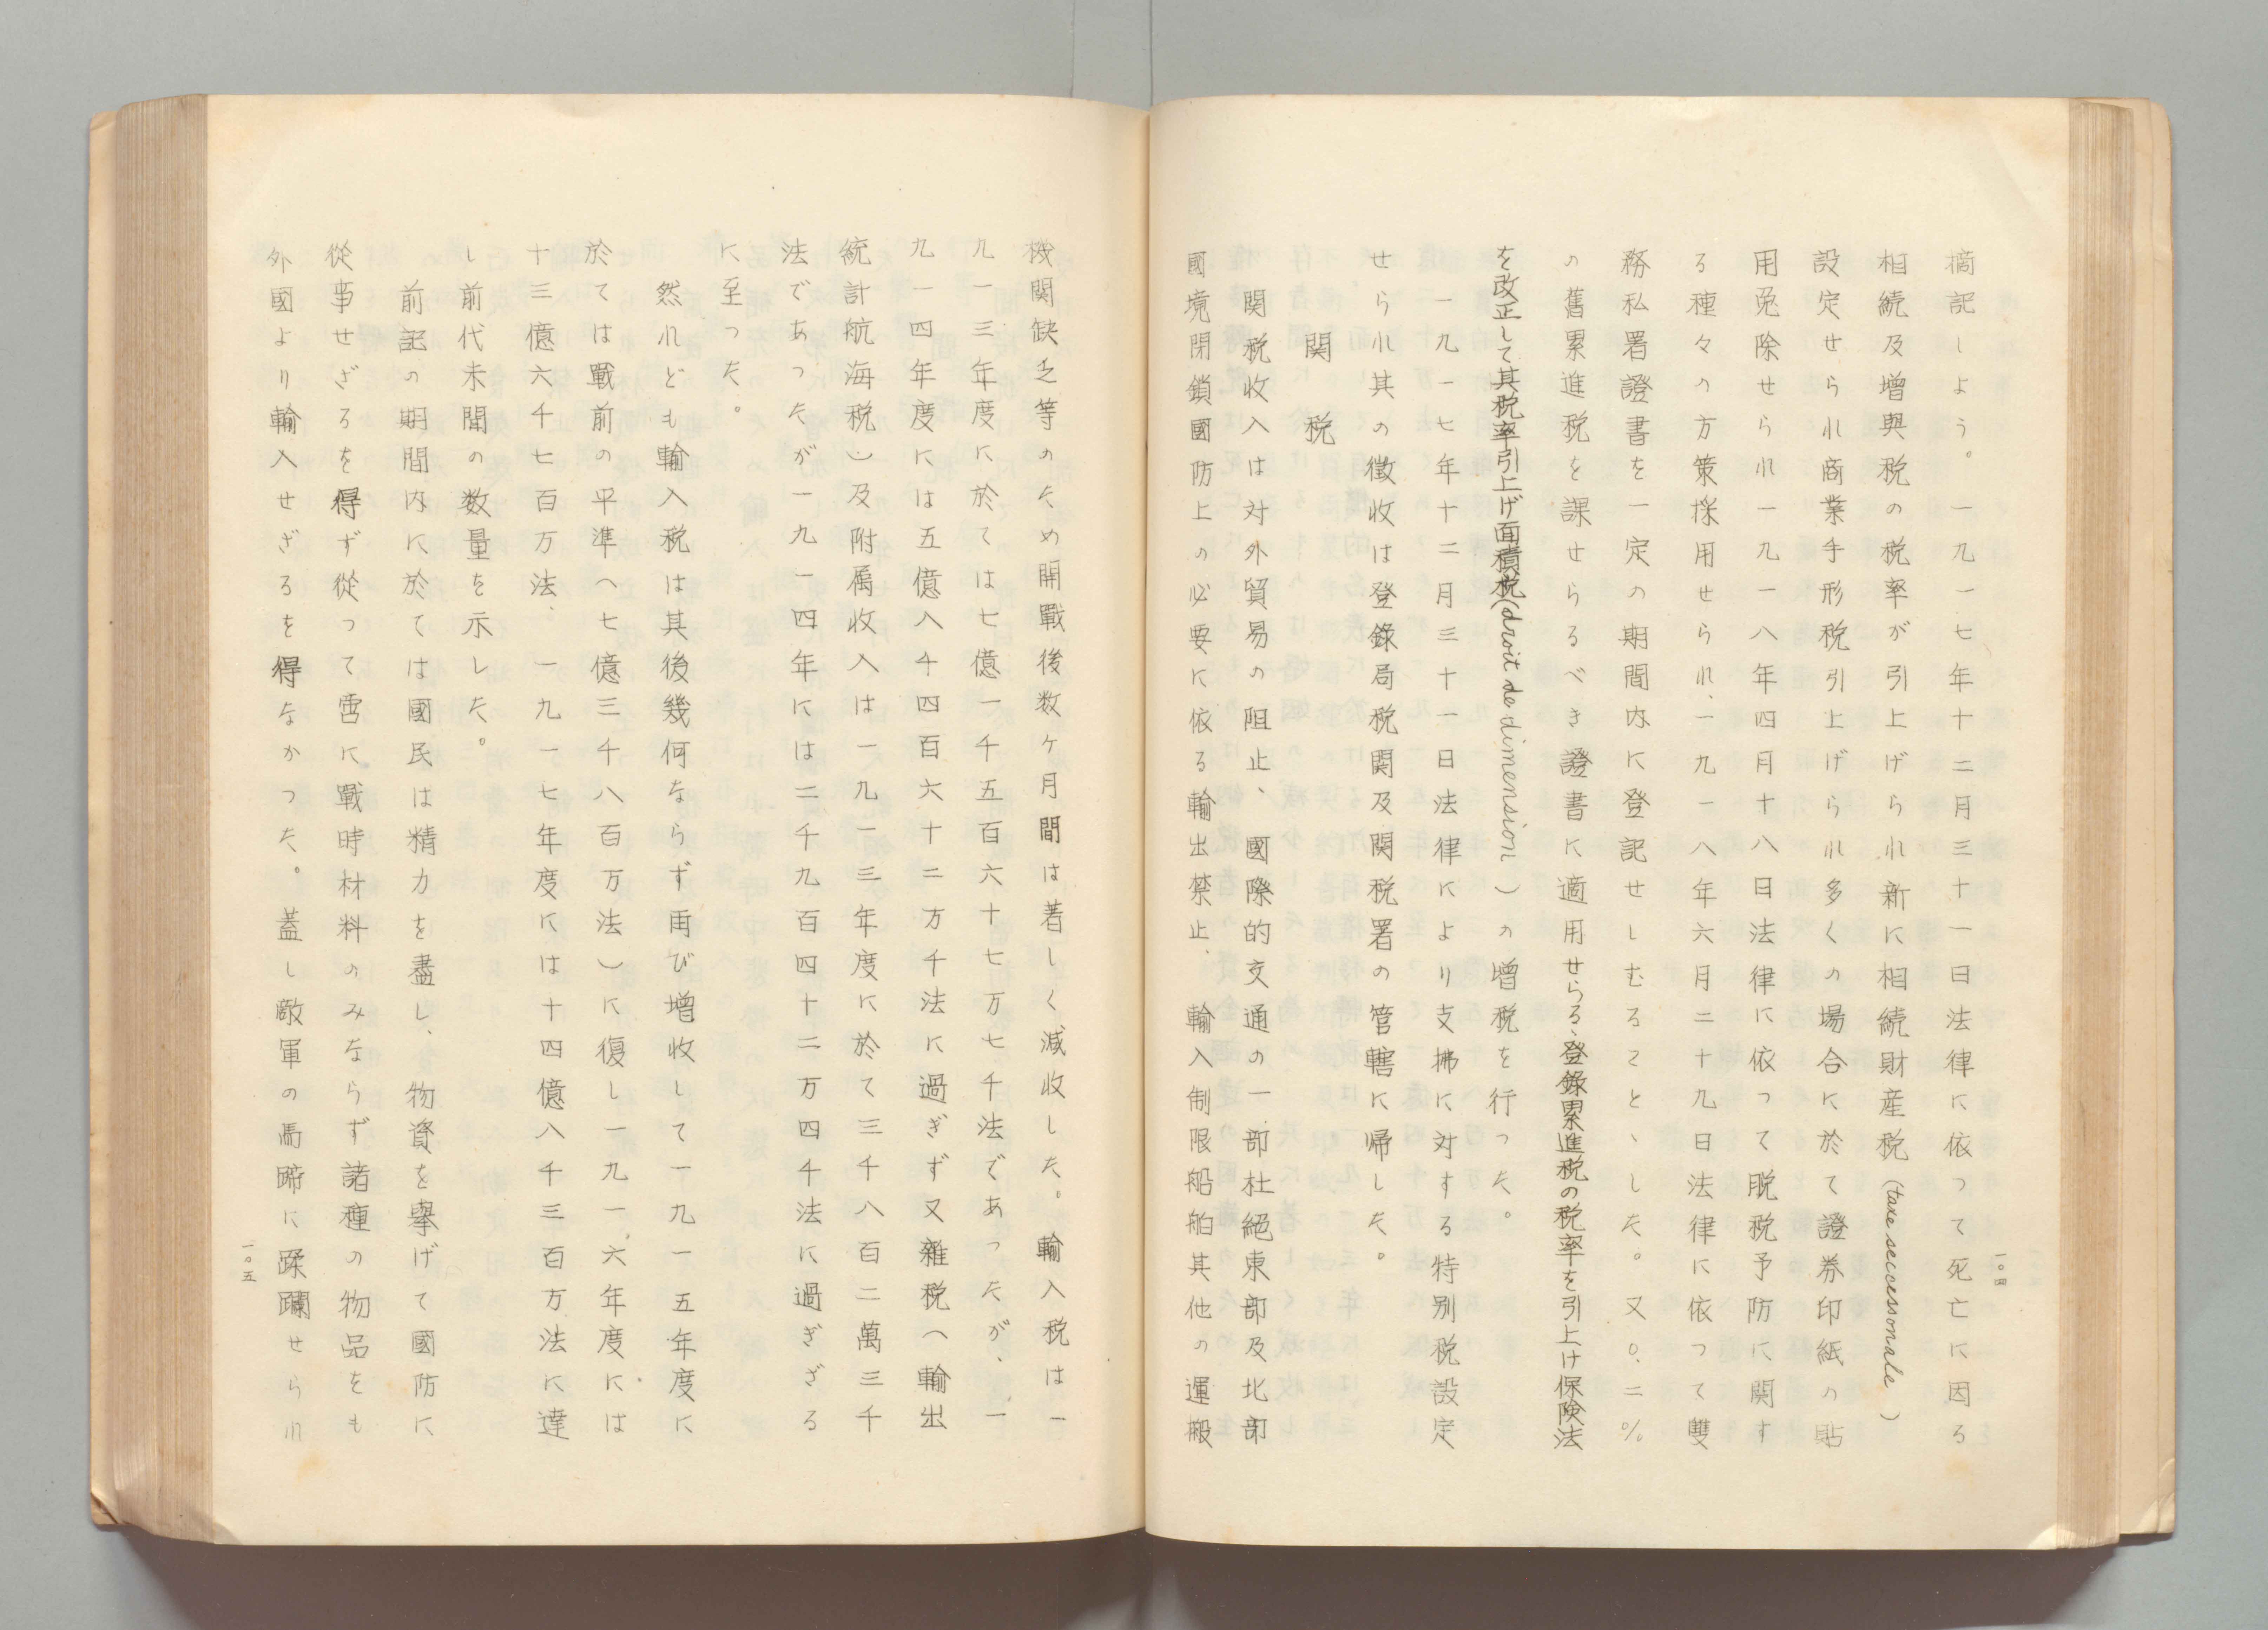 摘記しよう。一九一七年十二月三十一日法律に依って死亡に因る
相続及増與税の税率が引上げられ新に相続財産税(taxe seccessonale)
設定せられ商業手形税引上げられ多くの場合に於て證券印紙の貼
用免除せられ一九一八年四月十八日法律に依って脱税予防に関す
る種々の方策採用せられ、一九一八年六月二十九日法律に依って雙
務私署證書を一定の期間内に登記せしむること、した。又〇.二%
の舊累進税を課せらるべき證書に適用せらる、登錄累進税の税率を引上け保険法
を改正して其税率引上げ面積税(droit de dimension)の増税を行った。
一九一七年十二月三十一日法律により支拂に対する特別税設定
せられ其の徴收は登錄局税関及関税署の管轄に帰した。
関税
関税收入は対外貿易の阻止、國際的交通の一部杜絕東部及北部
國境閉鎖國防上の必要に依る輸出禁止、輸入制限船舶其他の運搬
一〇四
機関缺乏等のため開戰後数ヶ月間は著しく減收した。輸入税は一
九一三年度に於ては七億一千五百六十七万七千法であったが、一
九一四年度には五億八千四百六十二万千法に過ぎず又雜税(輸出
統計航海税)及附属收入は一九一三年度に於て三千八百二萬三千
法であったが一九一四年には二千九百四十二万四千法に過ぎざる
に至った。
然れども輸入税は其後幾何ならず再び増收して一九一五年度に
於ては戰前の平準(七億三千八百万法)に復し一九一六年度には
十三億六千七百万法、一九一七年度には十四億八千三百万法に達
し前代未聞の数量を示した。
前記の期間内に於ては國民は精力を盡し、物資を擧げて國防に
從事せざるを得ず從って啻に戰時材料のみならず諸種の物品をも
外國より輸入せざるを得なかった。蓋し敵軍の馬蹄に蹂躙せられ
一〇五